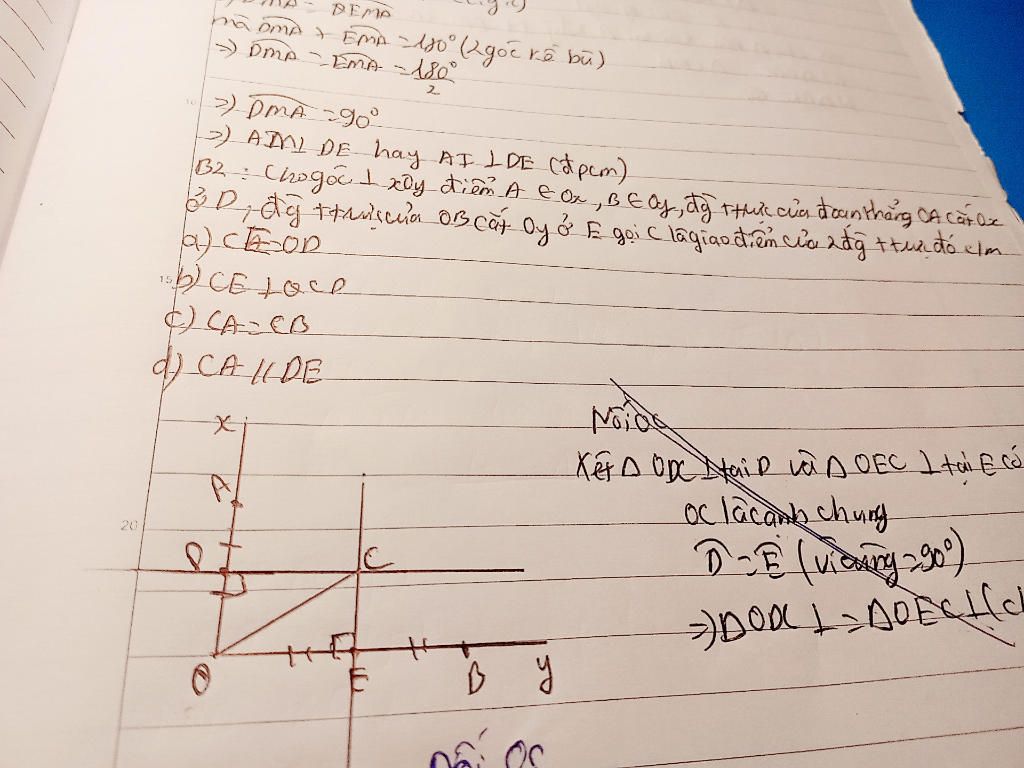 DMA = DEMA
mà DMA + EMA = 180° (2 góc kề bù)
=> DMA = EMA = 180°/2
=> DMA = 90°
=> AM ⊥ DE hay AI ⊥ DE (đpcm)
B2 : Cho góc ⊥ xOy điểm A ∈ Ox, B ∈ Oy, đg ttrực của đoan thẳng OA cắt Ox
ở D, đg ttrực của OB cắt Oy ở E gọi C là giao điểm của 2 đg ttrực đó c/m
a) CE = OD
15
b) CE ⊥ CD
c) CA = CB
d) CA // DE
x
A
20
D
C
O
E
B
y
Nối OC
Xét Δ ODC ⊥ tại D và Δ OEC ⊥ tại E có
OC là cạnh chung
D = E (vì cùng = 90°)
=> Δ ODC ⊥ = Δ OEC ⊥ (c
nối OC